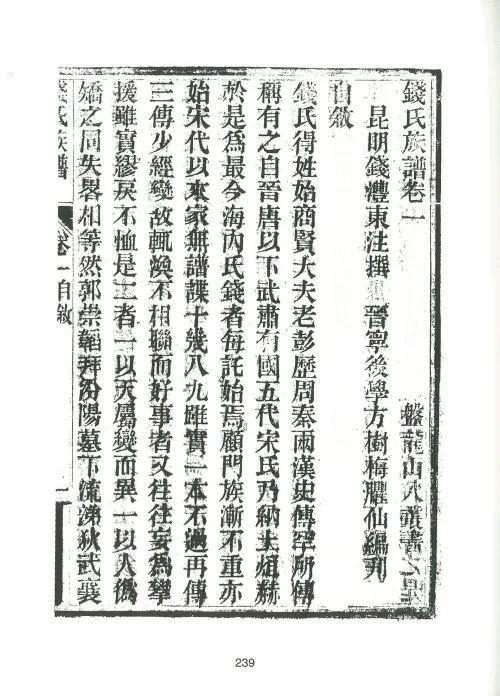 錢氏族譜卷一 盤龍山人叢書
昆明錢灃東注撰 晉寧後學方樹梅臞仙編刋
自敘
錢氏得姓始商賢大夫老彭歷周秦兩漢史傳罕所傳
稱有之自晉唐以下武肅有國五代宋氏乃納土煊赫
於是為最今海內氏錢者每託始焉顧門族漸不重亦
始宋代以來家無譜諜十幾八九雖實一本不過再傳
三傳少經變故輒渙不相聯而好事者又往往妄為攀
援雖實繆戾不恤是二者一以天屬變而異一以人僞
矯之同失畧相等然郭崇韜拜汾陽墓下流涕狄武襄
錢氏族譜 卷一自敘 一
239